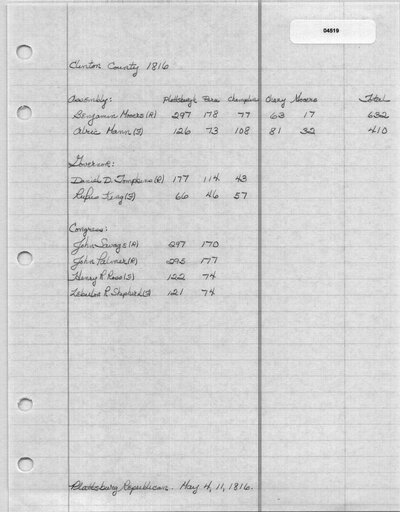 04519
Clinton County 1816
Assembly: Plattsburgh Peru Champlain Chazy Mooers Total
Benjamin Mooers (R) 297 178 77 63 17 632
Alric Mann (F) 126 73 108 81 32 410
Governor:
Daniel D. Tompkins (R) 177 114 43
Rufus King (F) 66 46 57
Congress:
John Savage (R) 297 170
John Palmer (R) 295 177
Henry R. Ross (F) 122 74
Zebulon R. Shepherd (F) 121 74
Plattsburg Republican. May 4, 11, 1816.